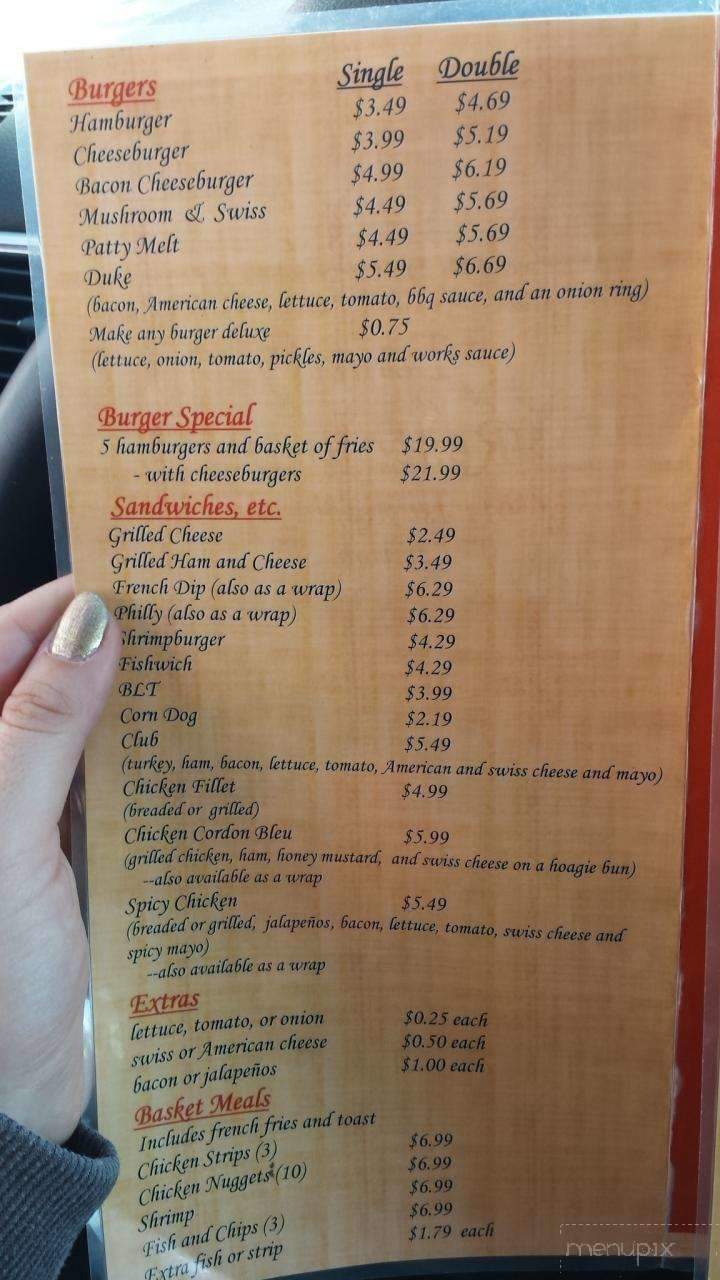 Burgers Single Double
Hamburger $3.49 $4.69
Cheeseburger $3.99 $5.19
Bacon Cheeseburger $4.99 $6.19
Mushroom & Swiss $4.49 $5.69
Patty Melt $4.49 $5.69
Duke $5.49 $6.69
(bacon, American cheese, lettuce, tomato, bbq sauce, and an onion ring)
Make any burger deluxe $0.75
(lettuce, onion, tomato, pickles, mayo and works sauce)
Burger Special
5 hamburgers and basket of fries $19.99
- with cheeseburgers $21.99
Sandwiches, etc.
Grilled Cheese $2.49
Grilled Ham and Cheese $3.49
French Dip (also as a wrap) $6.29
Philly (also as a wrap) $6.29
Shrimpburger $4.29
Fishwich $4.29
BLT $3.99
Corn Dog $2.19
Club $5.49
(turkey, ham, bacon, lettuce, tomato, American and swiss cheese and mayo)
Chicken Fillet $4.99
(breaded or grilled)
Chicken Cordon Bleu $5.99
(grilled chicken, ham, honey mustard, and swiss cheese on a hoagie bun)
--also available as a wrap
Spicy Chicken $5.49
(breaded or grilled, jalapeños, bacon, lettuce, tomato, swiss cheese and
spicy mayo)
--also available as a wrap
Extras
lettuce, tomato, or onion $0.25 each
swiss or American cheese $0.50 each
bacon or jalapeños $1.00 each
Basket Meals
Includes french fries and toast
Chicken Strips (3) $6.99
Chicken Nuggets (10) $6.99
Shrimp $6.99
Fish and Chips (3) $6.99
Extra fish or strip $1.79 each
menupix